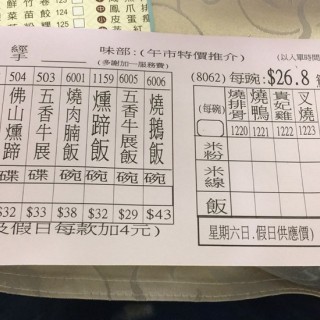 味部:(午市特價推介)
(多謝加一服務費)
(以入單時間
504 503 6001 1159 6005 6006
佛山燻蹄 五香牛展 燒肉腩飯 燻蹄飯 五香牛展飯 燒鵝飯
碟 碟 碗 碗 碗 碗
$32 $33 $38 $32 $29 $43
假日每款加4元)
(8062) 每碗:$26.8
(每碗) 燒排骨 燒鴨 貴妃雞 叉燒
1220 1221 1222 1223
米粉
米線
飯
星期六日.假日供應價)